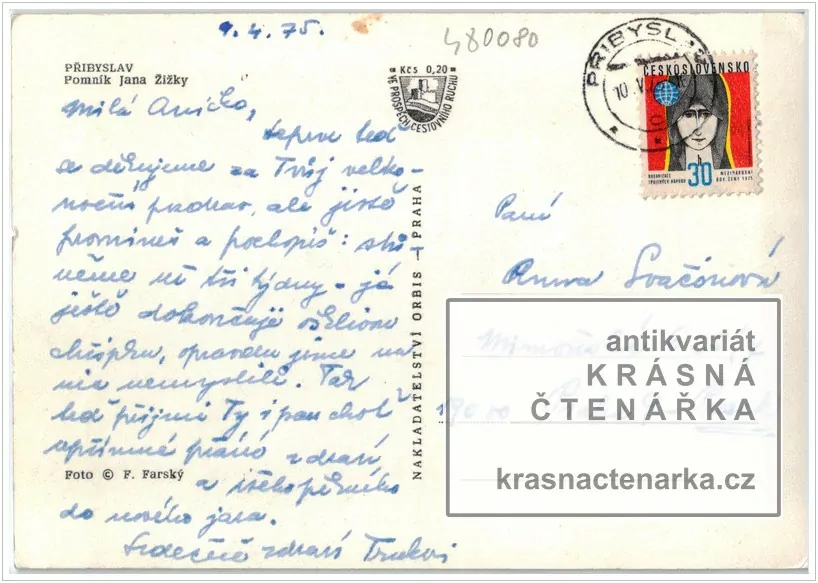 9.4.75.
480080
PŘIBYSLAV
Pomník Jana Žižky
Kčs 0,20
VE PROSPĚCH CESTOVNÍHO RUCHU
PŘIBYSL
10. V
ČESKOSLOVENSKO
ORGANIZACE SPOJENÝCH NÁRODŮ
30
MEZINÁRODNÍ ROK ŽENY 1975
Milá Aničko,
teprve teď
se děkujeme za Tvůj veliko-
noční pozdrav, ale jistě
promineš a pochopíš: stů-
něme už tři týdny - já
ještě dokončuji ošklivou
chřipku, opravdu jsme na
nic nemysleli. Tak
teď přijmi Ty i pan choť
upřímné přání zdraví
a všeho pěkného
do nového jara.
Srdečně zdraví
NAKLADATELSTVÍ ORBIS — PRAHA
Foto © F. Farský
Paní
Anna Svačinová
antikvariát
KRÁSNÁ
ČTENÁŘKA
krasnactenarka.cz